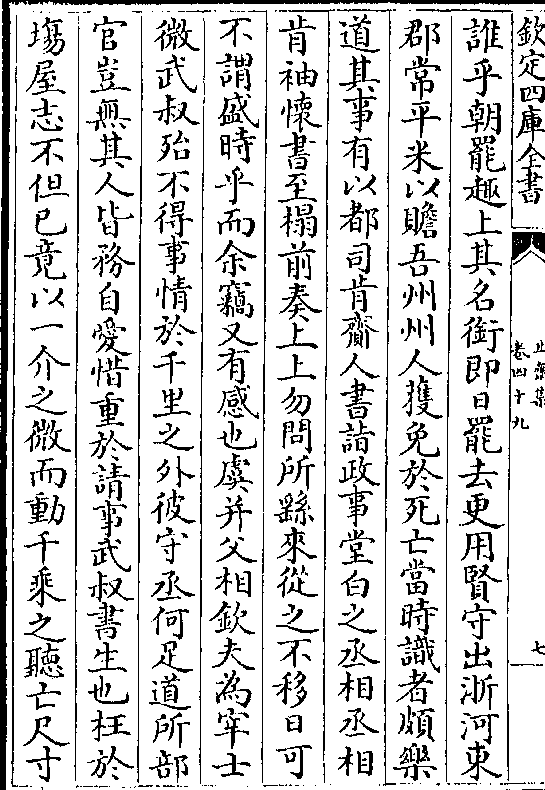 欽定四庫全書
止齋集
卷四十九
七
誰乎朝罷趣上其名銜即日罷去更用賢守出浙河東
郡常平米以贍吾州州人獲免於死亡當時識者頗樂
道其事有以都司肯齎人書詣政事堂白之丞相丞相
肯袖懷書至榻前奏上上勿問所繇來從之不移日可
不謂盛時乎而余竊又有感也虞并父相欽夫為宰士
微武叔殆不得事情於千里之外彼守丞何足道所部
官豈無其人皆務自愛惜重於請事武叔書生也枉於
塲屋志不但已竟以一介之微而動千乘之聽亡尺寸